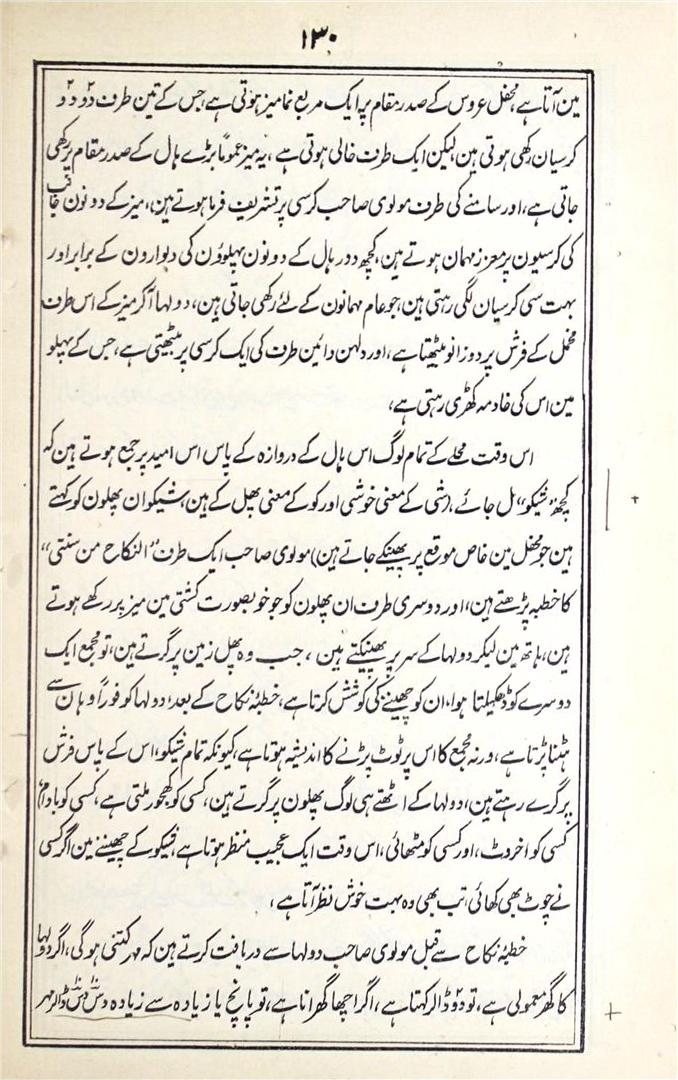 ۱۳۰
مین آتا ہے، محفل عروس کے صدر مقام پر ایک مربع نما میز ہوتی ہے جس کے تین طرف دو دو
کرسیان رکھی ہوتی ہین، لیکن ایک طرف خالی ہوتی ہے، یہ میز عموماً بڑے ہال کے صدر مقام پر رکھی
جاتی ہے، اور سامنے کی طرف مولوی صاحب کرسی پر تشریف فرما ہوتے ہین، میز کے دونون جانب
کی کرسیون پر معزز مہمان ہوتے ہین، کچھ دور ہال کے دونون پہلوؤن کی دیوارون کے برابر اور
بہت سی کرسیان لگی رہتی ہین، جو عام مہمانون کے لئے رکھی جاتی ہین، دولھا آکر میز کے اس طرف
مخمل کے فرش پر دو زانو بیٹھتا ہے، اور دلہن دائین طرف کی ایک کرسی پر بیٹھتی ہے، جس کے پہلو
مین اس کی خادمہ کھڑی رہتی ہے،
اس وقت محلے کے تمام لوگ اس ہال کے دروازہ کے پاس اس امید پر جمع ہوتے ہین کہ
کچھ "شیکو" مل جائے، (شی کے معنی خوشی اور کو کے معنی پھل کے ہین، شیکو ان پھلون کو کہتے
ہین جو محفل مین خاص موقع پر پھینکے جاتے ہین) مولوی صاحب ایک طرف "النکاح من سنتی"
کا خطبہ پڑھتے ہین، اور دوسری طرف ان پھلون کو جو خوبصورت کشتی مین میز پر رکھے ہوتے
ہین، ہاتھ مین لیکر دولھا کے سر پر پھینکتے ہین، جب وہ پھل زمین پر گرتے ہین، تو مجمع ایک
دوسرے کو ڈھکیلتا ہوا، ان کو چھیننے کی کوشش کرتا ہے، خطبۂ نکاح کے بعد، دولھا کو فوراً وہان سے
ہٹنا پڑتا ہے، ورنہ مجمع کا اس پر ٹوٹ پڑنے کا اندیشہ ہوتا ہے، کیونکہ تمام شیکو، اس کے پاس فرش
پر گرے رہتے ہین، دولھا کے اٹھتے ہی لوگ پھلون پر گرتے ہین، کسی کو کھجور ملتی ہے، کسی کو بادام،
کسی کو اخروٹ، اور کسی کو مٹھائی، اس وقت ایک عجیب منظر ہوتا ہے، شیکو کے چھیننے مین اگر کسی
نے چوٹ بھی کھائی، تب بھی وہ بہت خوش نظر آتا ہے،
خطبۂ نکاح سے قبل مولوی صاحب دولھا سے دریافت کرتے ہین کہ مہر کتنی ہوگی، اگر دولھا
کا گھر معمولی ہے، تو دو ڈالر کہتا ہے، اگر اچھا گھرانا ہے، تو پانچ یا زیادہ سے زیادہ دس دس ڈالر مہر